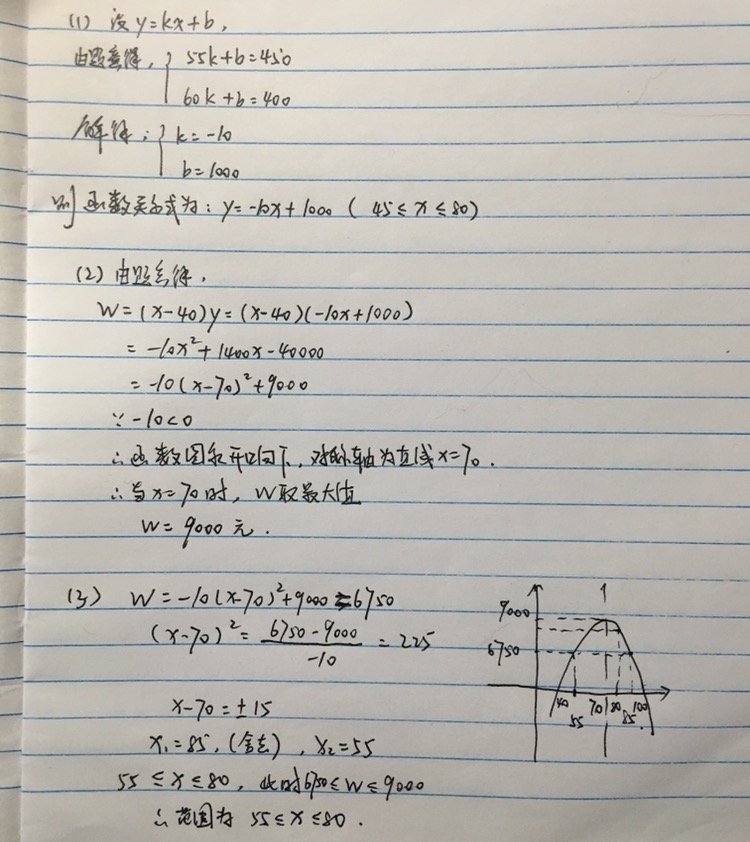 (1) 设 y=kx+b,
由题意得, { 55k+b=450
60k+b=400
解得: { k=-10
b=1000
则函数关系式为: y=-10x+1000 ( 45≤x≤80)
(2) 由题意得,
W=(x-40)y=(x-40)(-10x+1000)
=-10x²+1400x-40000
=-10(x-70)²+9000
∵ -10<0
∴函数图象开口向下, 对称轴为直线x=70.
∴当x=70时, W取最大值
W=9000元.
(3) W=-10(x-70)²+9000=6750
(x-70)²=(6750-9000)/(-10)=225
x-70=±15
x₁=85, (舍去), x₂=55
55≤x≤80, 此时6750≤W≤9000
∴范围为 55≤x≤80.
9000
6750
40 55 70 80 85 100